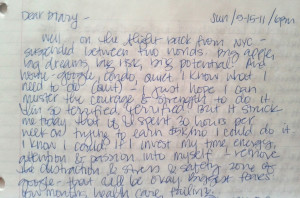 Dear Diary - Sun/5-15-11/6pm
Well - on the flight back from NYC -
suspended between two worlds. Big
ing dreams, big risk, big potential? And
google, condo, quiet I know what I
need to do (quit) - I just hope I can
muster the courage & strength to do it.
I am so terrified. But it struck
me today what if I spent 30 hours per
week on trying to earn I could do it
I know I could if I invest my time, energy,
attention & passion into myself - remove
the distraction & stress & safety zone of
google - that all be okay. Biggest fears
months, health care,